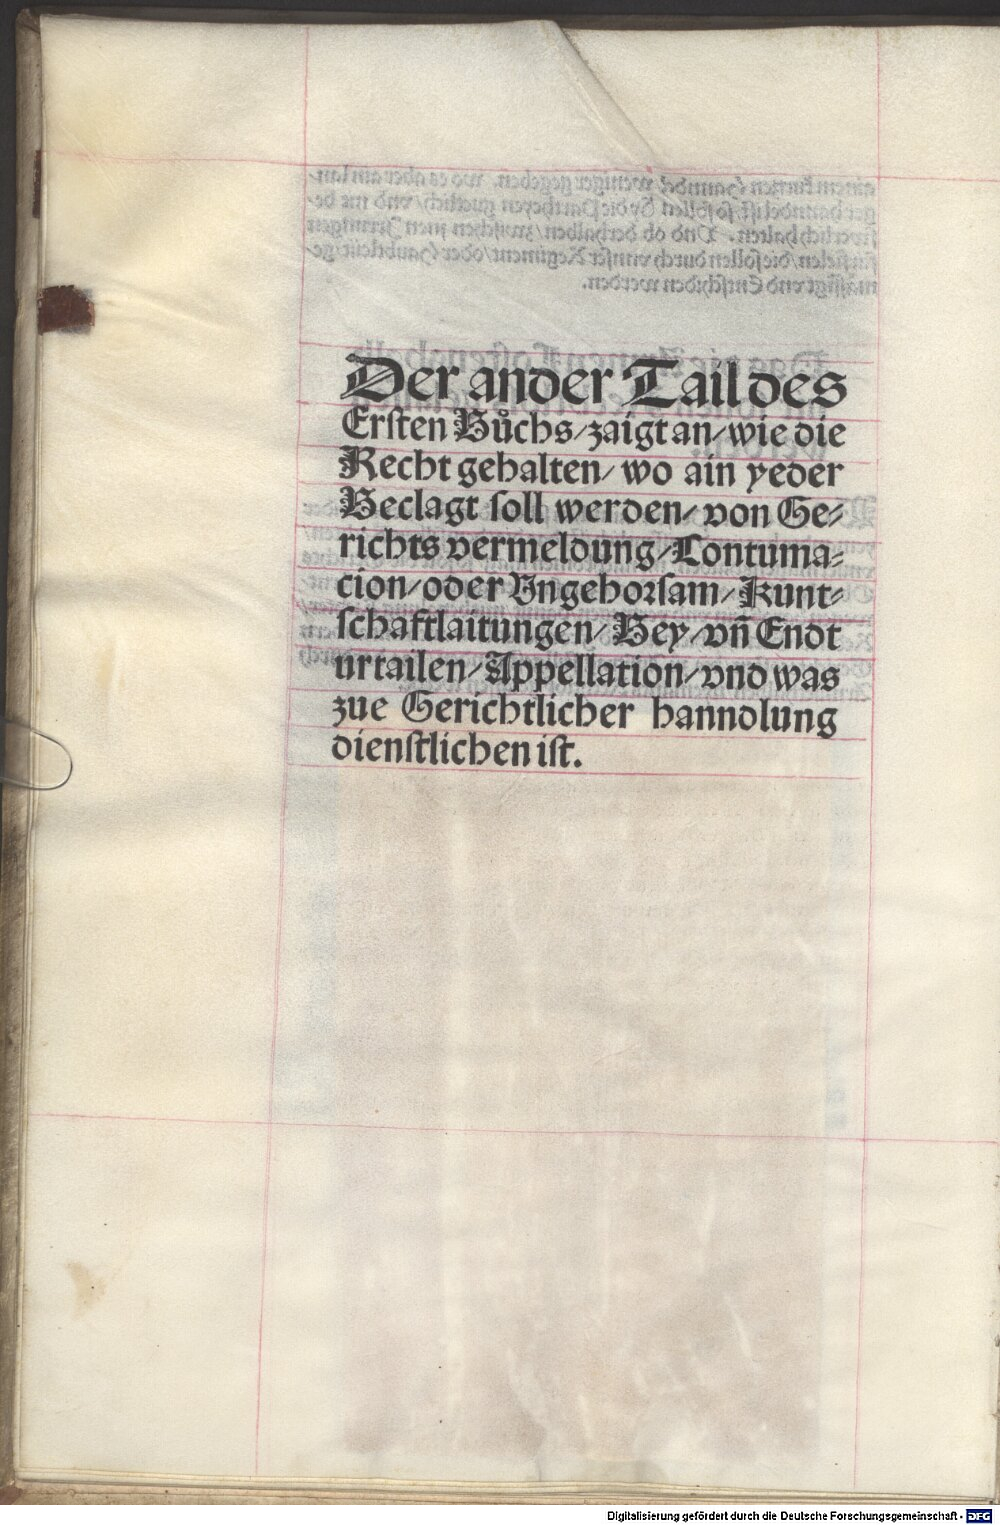 Der ander Tail des
Ersten Bůchs/zaigt an/wie die
Recht gehalten/ wo ain yeder
Beclagt soll werden/ von Ge⸗
richts vermeldung/Contuma⸗
cion/oder Vngehorsam/Kunt⸗
schafftlaitungen/Bey/vñ Endt
urtailen/Appellation/vnd was
zue Gerichtlicher hanndlung
dienstlichen ist.
Digitalisierung gefördert durch die Deutsche Forschungsgemeinschaft - DFG